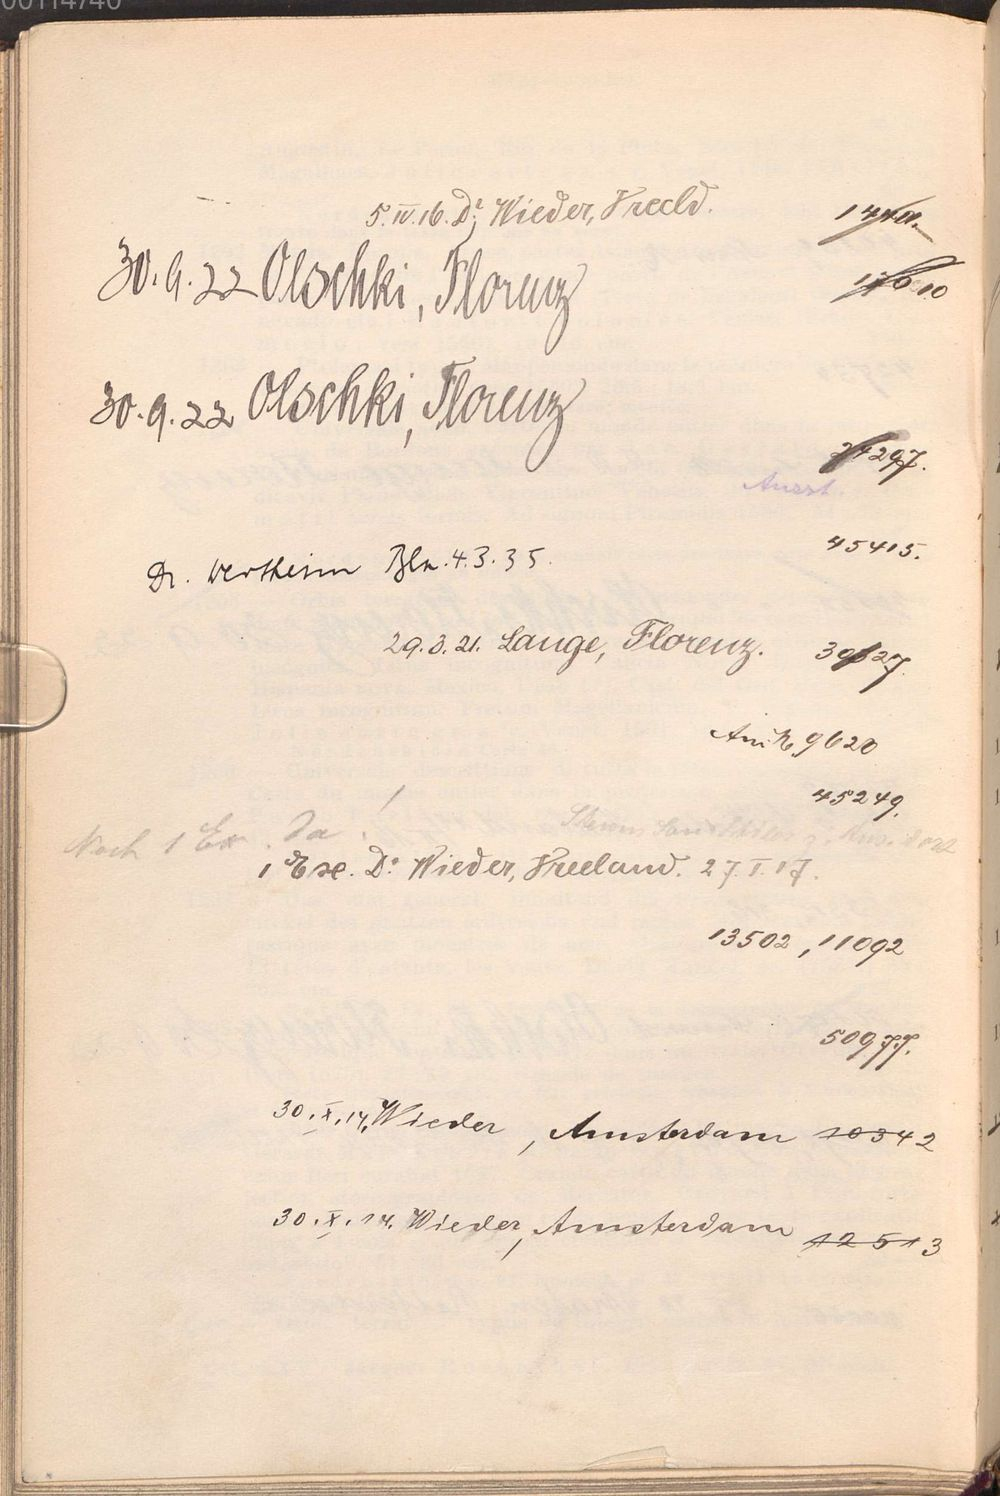 00114740
5.IV.16. Dr. Wieder, Vreeld.
30.9.22 Olschki, Florenz
30.9.22 Olschki, Florenz
24297.
Ausst.
45415.
Dr. Wertheim Bln. 4.3.35.
29.3.21. Lange, Florenz. 39627.
Antk 9620
45249.
Noch 1 Ex. da!
1 Exe. Dr. Wieder, Vreeland. 27.I.17.
13502, 11092
50977.
30.X.14. Wieder, Amsterdam 10342
30.X.14. Wieder, Amsterdam 12513